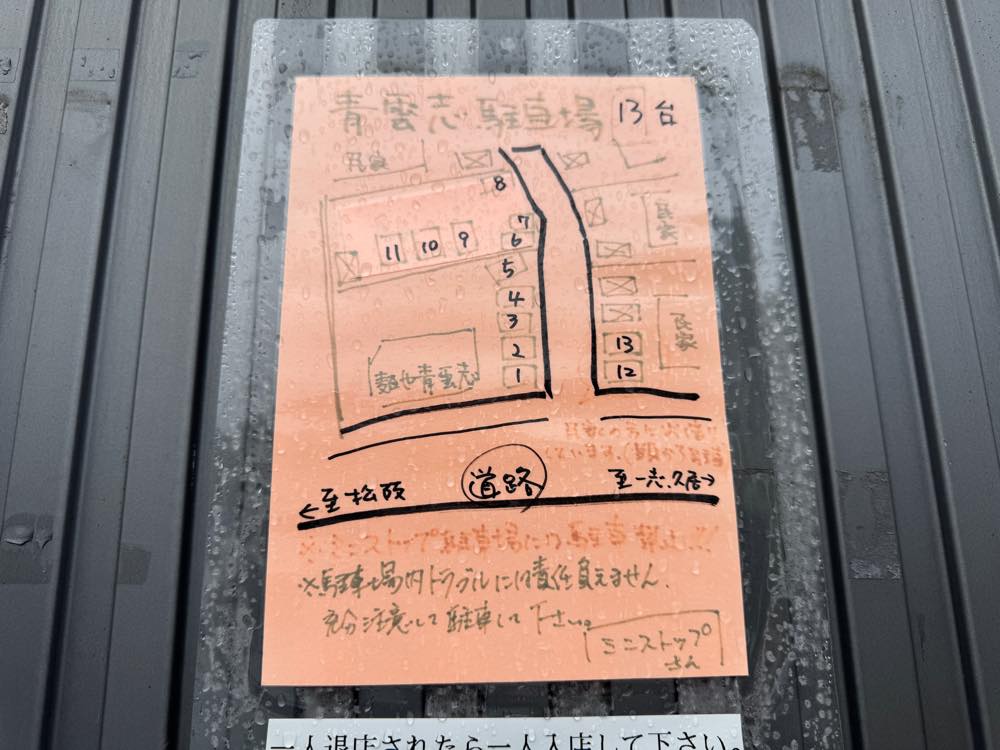 青雲志駐車場 13台
民家
8
7
11 10 9 6
5
4
3
2 13
1 12
民家
民家
麺や青雲志
民家の方にお借り
しています。
道路
←至松阪
至一志.久居→
※ミニストップ駐車場には駐車禁止!!
※駐車場内トラブルには責任負えません.
充分注意して駐車して下さい。
ミニストップ
さん
一人退店されたら一人入店して下さい。